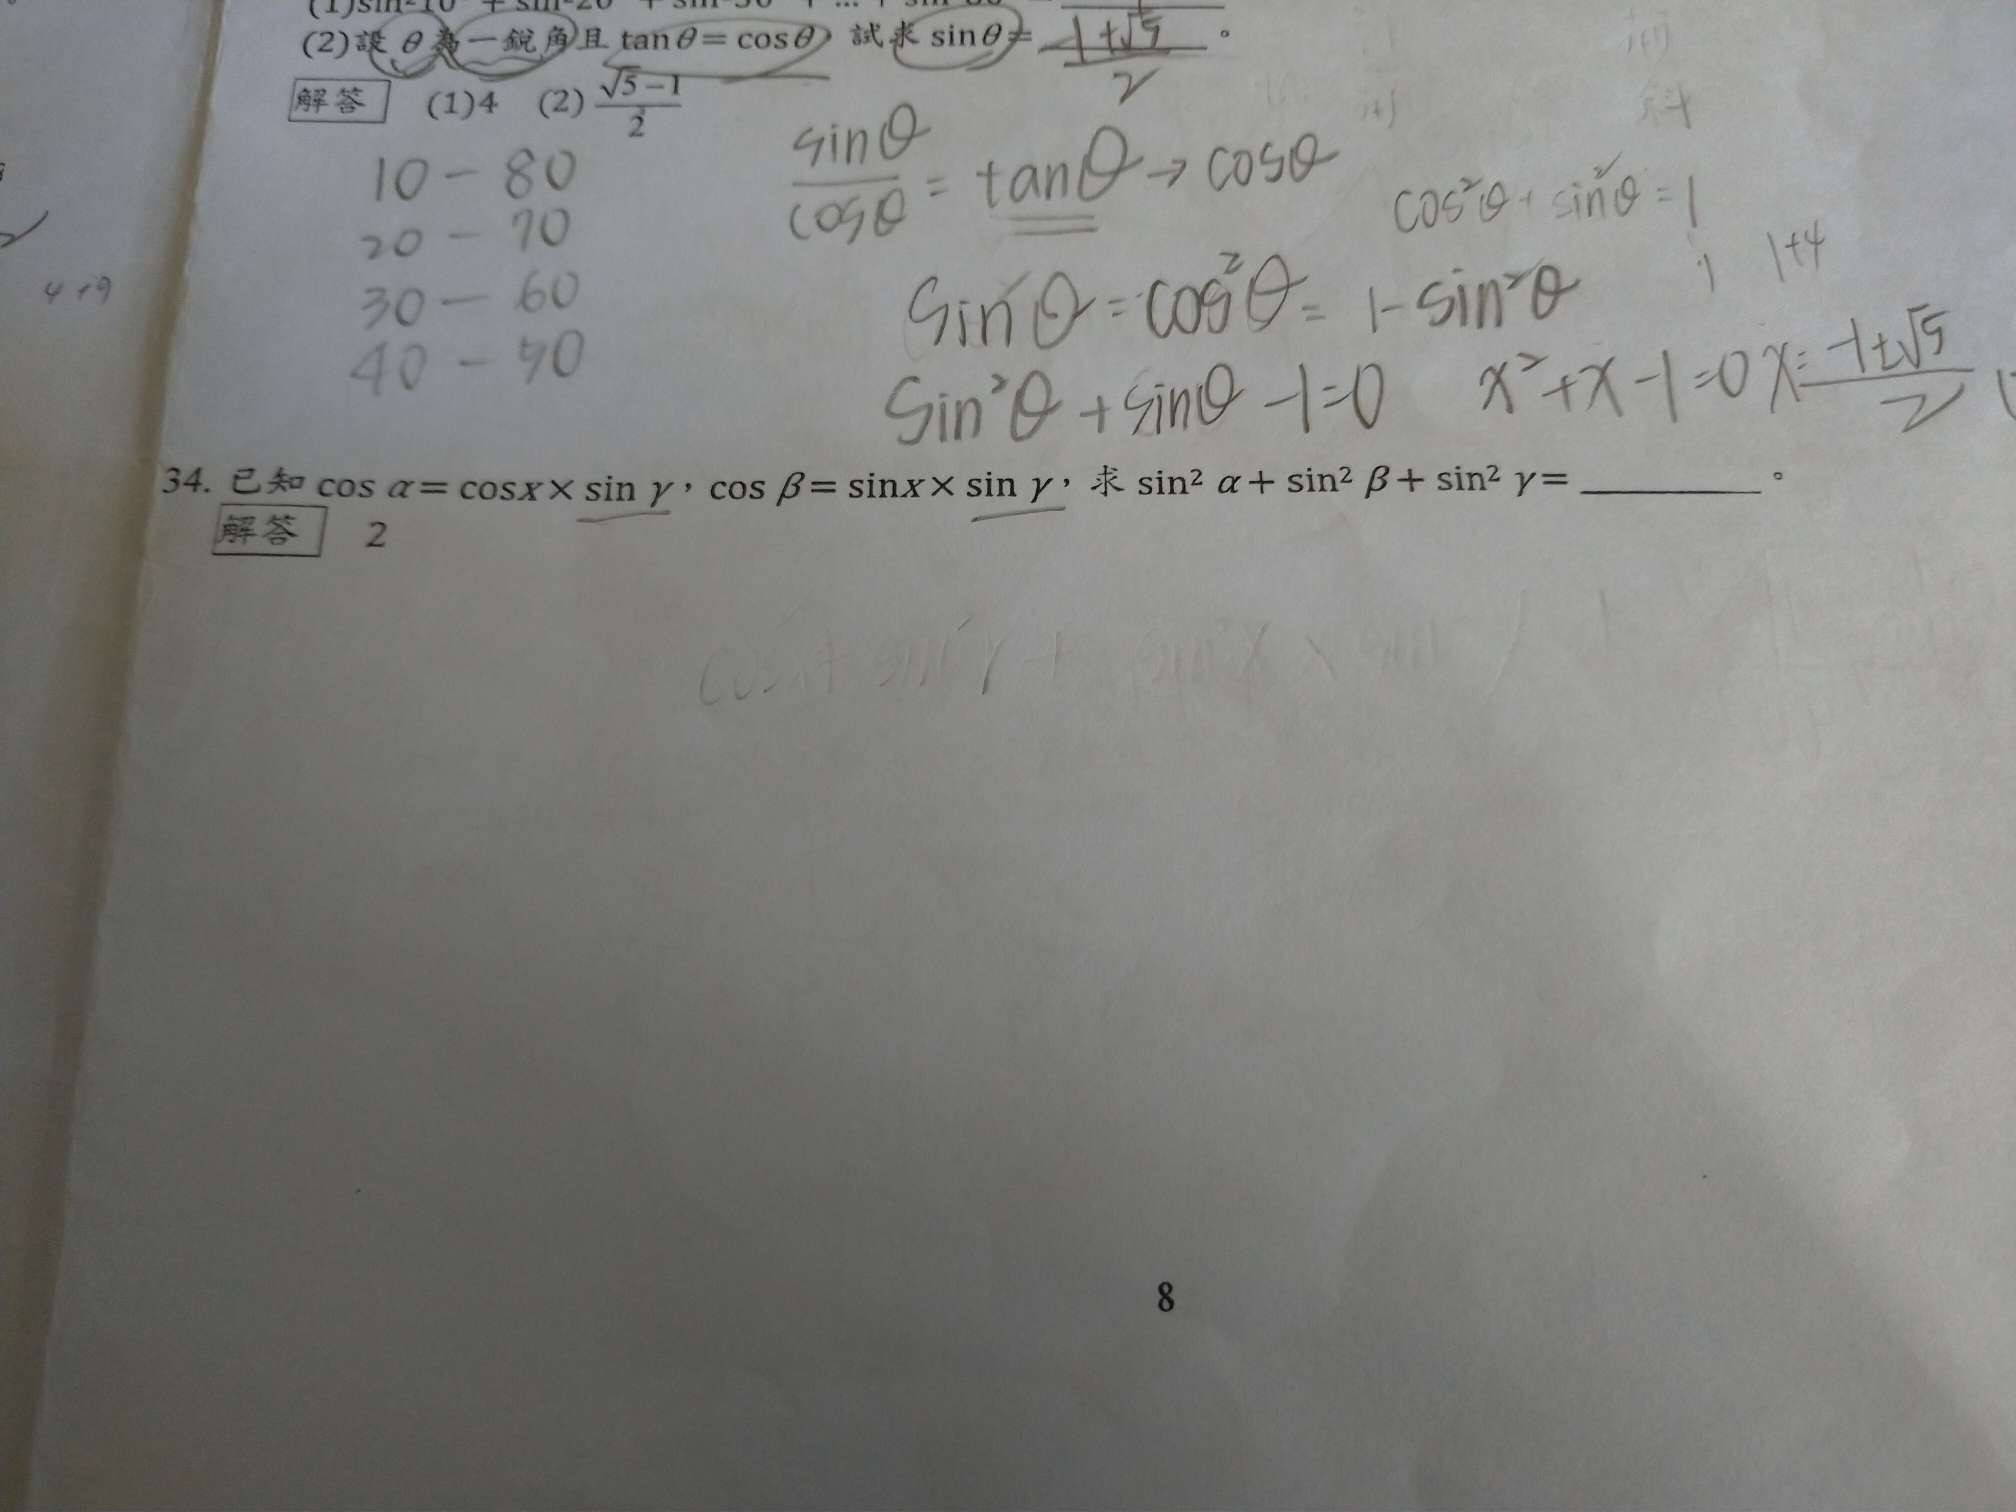 (2)設 θ 為一銳角且 tanθ= cosθ，試求 sinθ= -1+√5 / 2 。
解答 (1)4 (2) √5−1 / 2
10 - 80
20 - 70
30 - 60
40 - 50
sinθ / cosθ = tanθ → cosθ
cos²θ + sin²θ = 1
1+4
sinθ = cos²θ = 1-sin²θ
4+9
sin²θ + sinθ -1=0 x²+x-1=0 x= -1±√5 / 2
34. 已知 cos α= cosx× sin γ，cos β= sinx× sin γ，求 sin² α+ sin² β+ sin² γ= ________ 。
解答 2
8